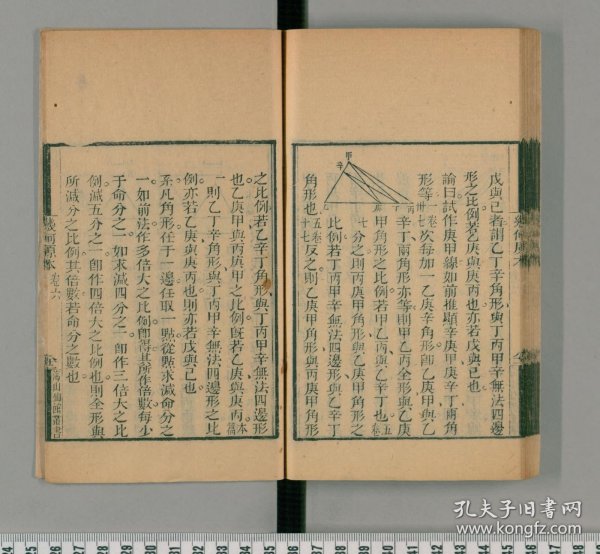 戊與己若謂乙丁辛角形與丁丙甲辛無法四邊
形之比例若乙庚與庚丙也亦若戊與己也
論曰試作庚甲線如前推顯辛庚甲庚辛丁兩角
形等
次每加一乙庚辛角形即乙庚甲與乙
辛丁兩角形亦等則甲乙丙全形與乙庚
甲角形之比例若甲乙丙與乙辛丁也
分之則丙庚甲角形與乙庚甲角形之
比例若丁丙甲辛無法四邊形與乙辛丁
角形也
反之則乙庚甲角形與丙庚甲角形
之比例若乙辛丁角形與丁丙甲辛無法四邊形
也乙庚甲與丙庚甲之比例既若乙庚與庚丙
則乙丁辛角形與丁丙甲辛無法四邊形之比
例亦若乙庚與庚丙也則亦若戊與己也
系凡角形任于一邊任取一點從點求減命分之
一如前法作多倍大之比例即得其所作倍數每少
于命分之一如求減四分之一即作三倍大之比
例減五分之一即作四倍大之比例也則全形與
所減分之比例其倍數若命分之數也
幾何原本
卷六
海山仙館叢書
孔夫子旧书网
www.kongfz.com
24 25 26 27 28 29 30 31 32 33 34 35 36 37 38 39 40 41 42 43 44 45 46 47 48